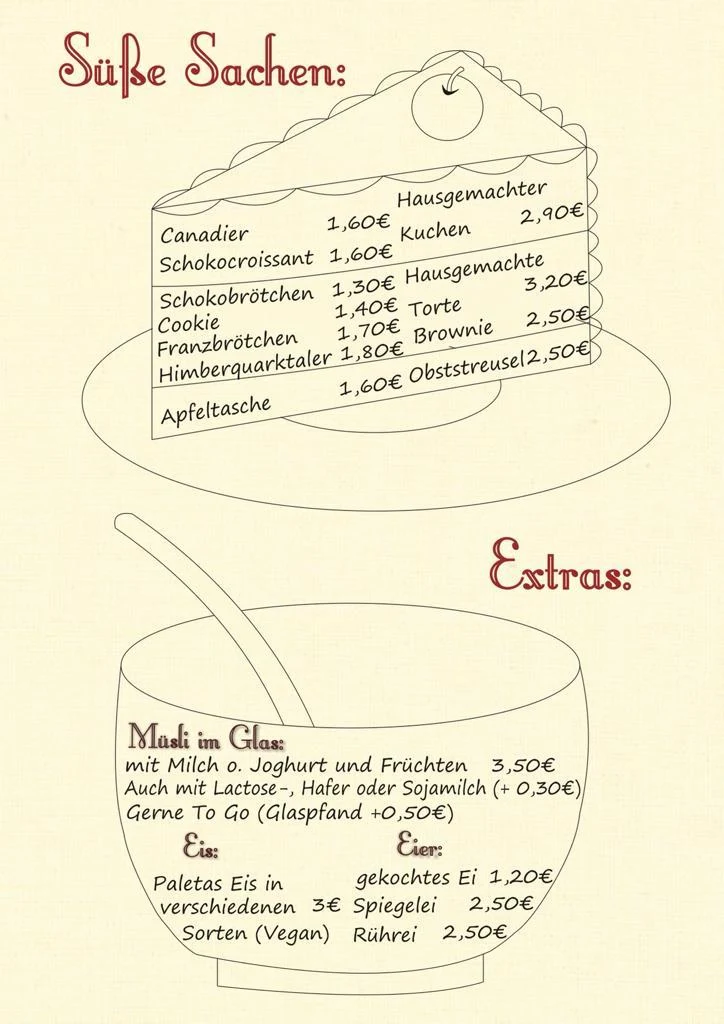 Süße Sachen:
Canadier 1,60€
Schokocroissant 1,60€
Schokobrötchen 1,30€
Cookie 1,40€
Franzbrötchen 1,70€
Himberquarktaler 1,80€
Apfeltasche 1,60€
Hausgemachter
Kuchen 2,90€
Hausgemachte
Torte 3,20€
Brownie 2,50€
Obststreusel 2,50€
Extras:
Müsli im Glas:
mit Milch o. Joghurt und Früchten 3,50€
Auch mit Lactose-, Hafer oder Sojamilch (+ 0,30€)
Gerne To Go (Glaspfand +0,50€)
Eis:
Paletas Eis in
verschiedenen 3€
Sorten (Vegan)
Eier:
gekochtes Ei 1,20€
Spiegelei 2,50€
Rührei 2,50€